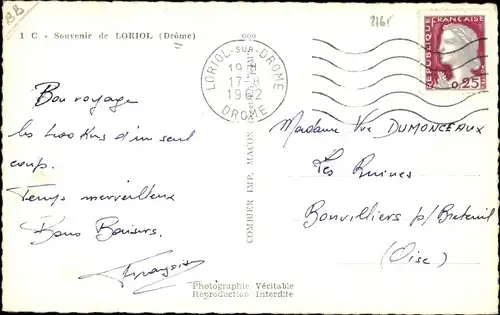 BB
1 C - Souvenir de LORIOL (Drôme)
216F
LORIOL-SUR-DROME
17-8
1962
DROME
REPUBLIQUE FRANÇAISE
0,25
Bon voyage
les 400 Kms d'un seul
coup.
Temps merveilleux
Bons Baisers.
François
COMBIER IMP. MACON
Madame Vve DUMONCEAUX
Les Ruines
Bonvilliers p/Breteuil
(Oise)
Photographie Véritable
Reproduction Interdite